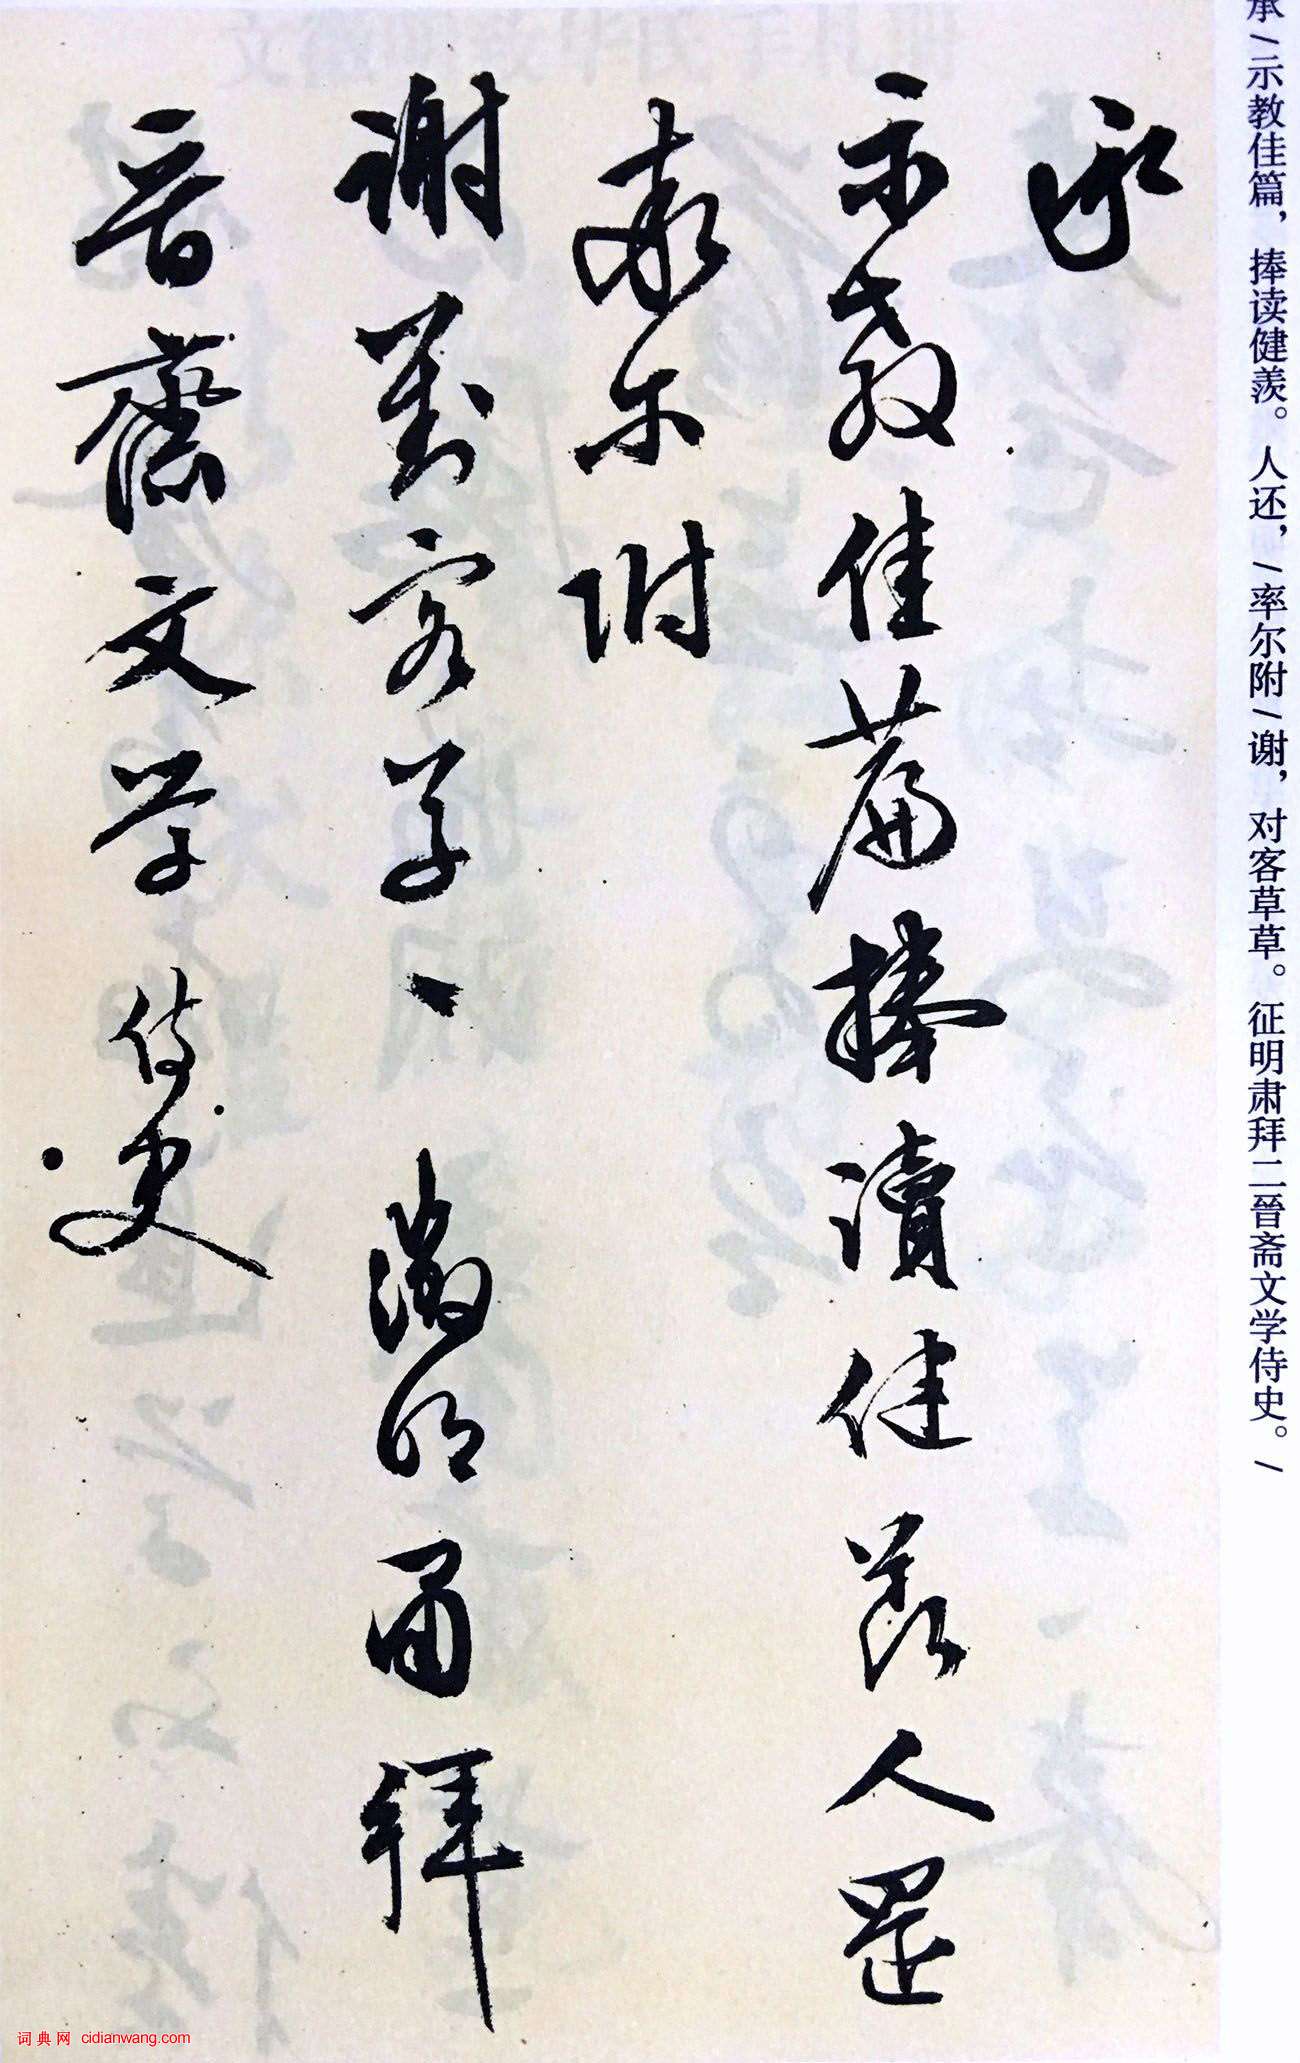 承/示教佳篇，捧读健羡。人还，/率尔附/谢，对客草草。征明肃拜二晉斋文学侍史。/
承
示教佳篇捧讀健羡人還
率尔附
謝對客草〻 徵明肅拜
晋齋文学侍史
词典网 cidianwang.com